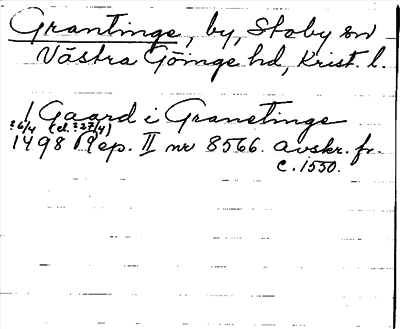 Grantinge, by, Stoby sn
Västra Göinge hd, Krist. l.
1 Gaard i Granetinge
26/4 (el. 27/4)
1498 Rep. II nr 8566. avskr. fr.
c. 1550.